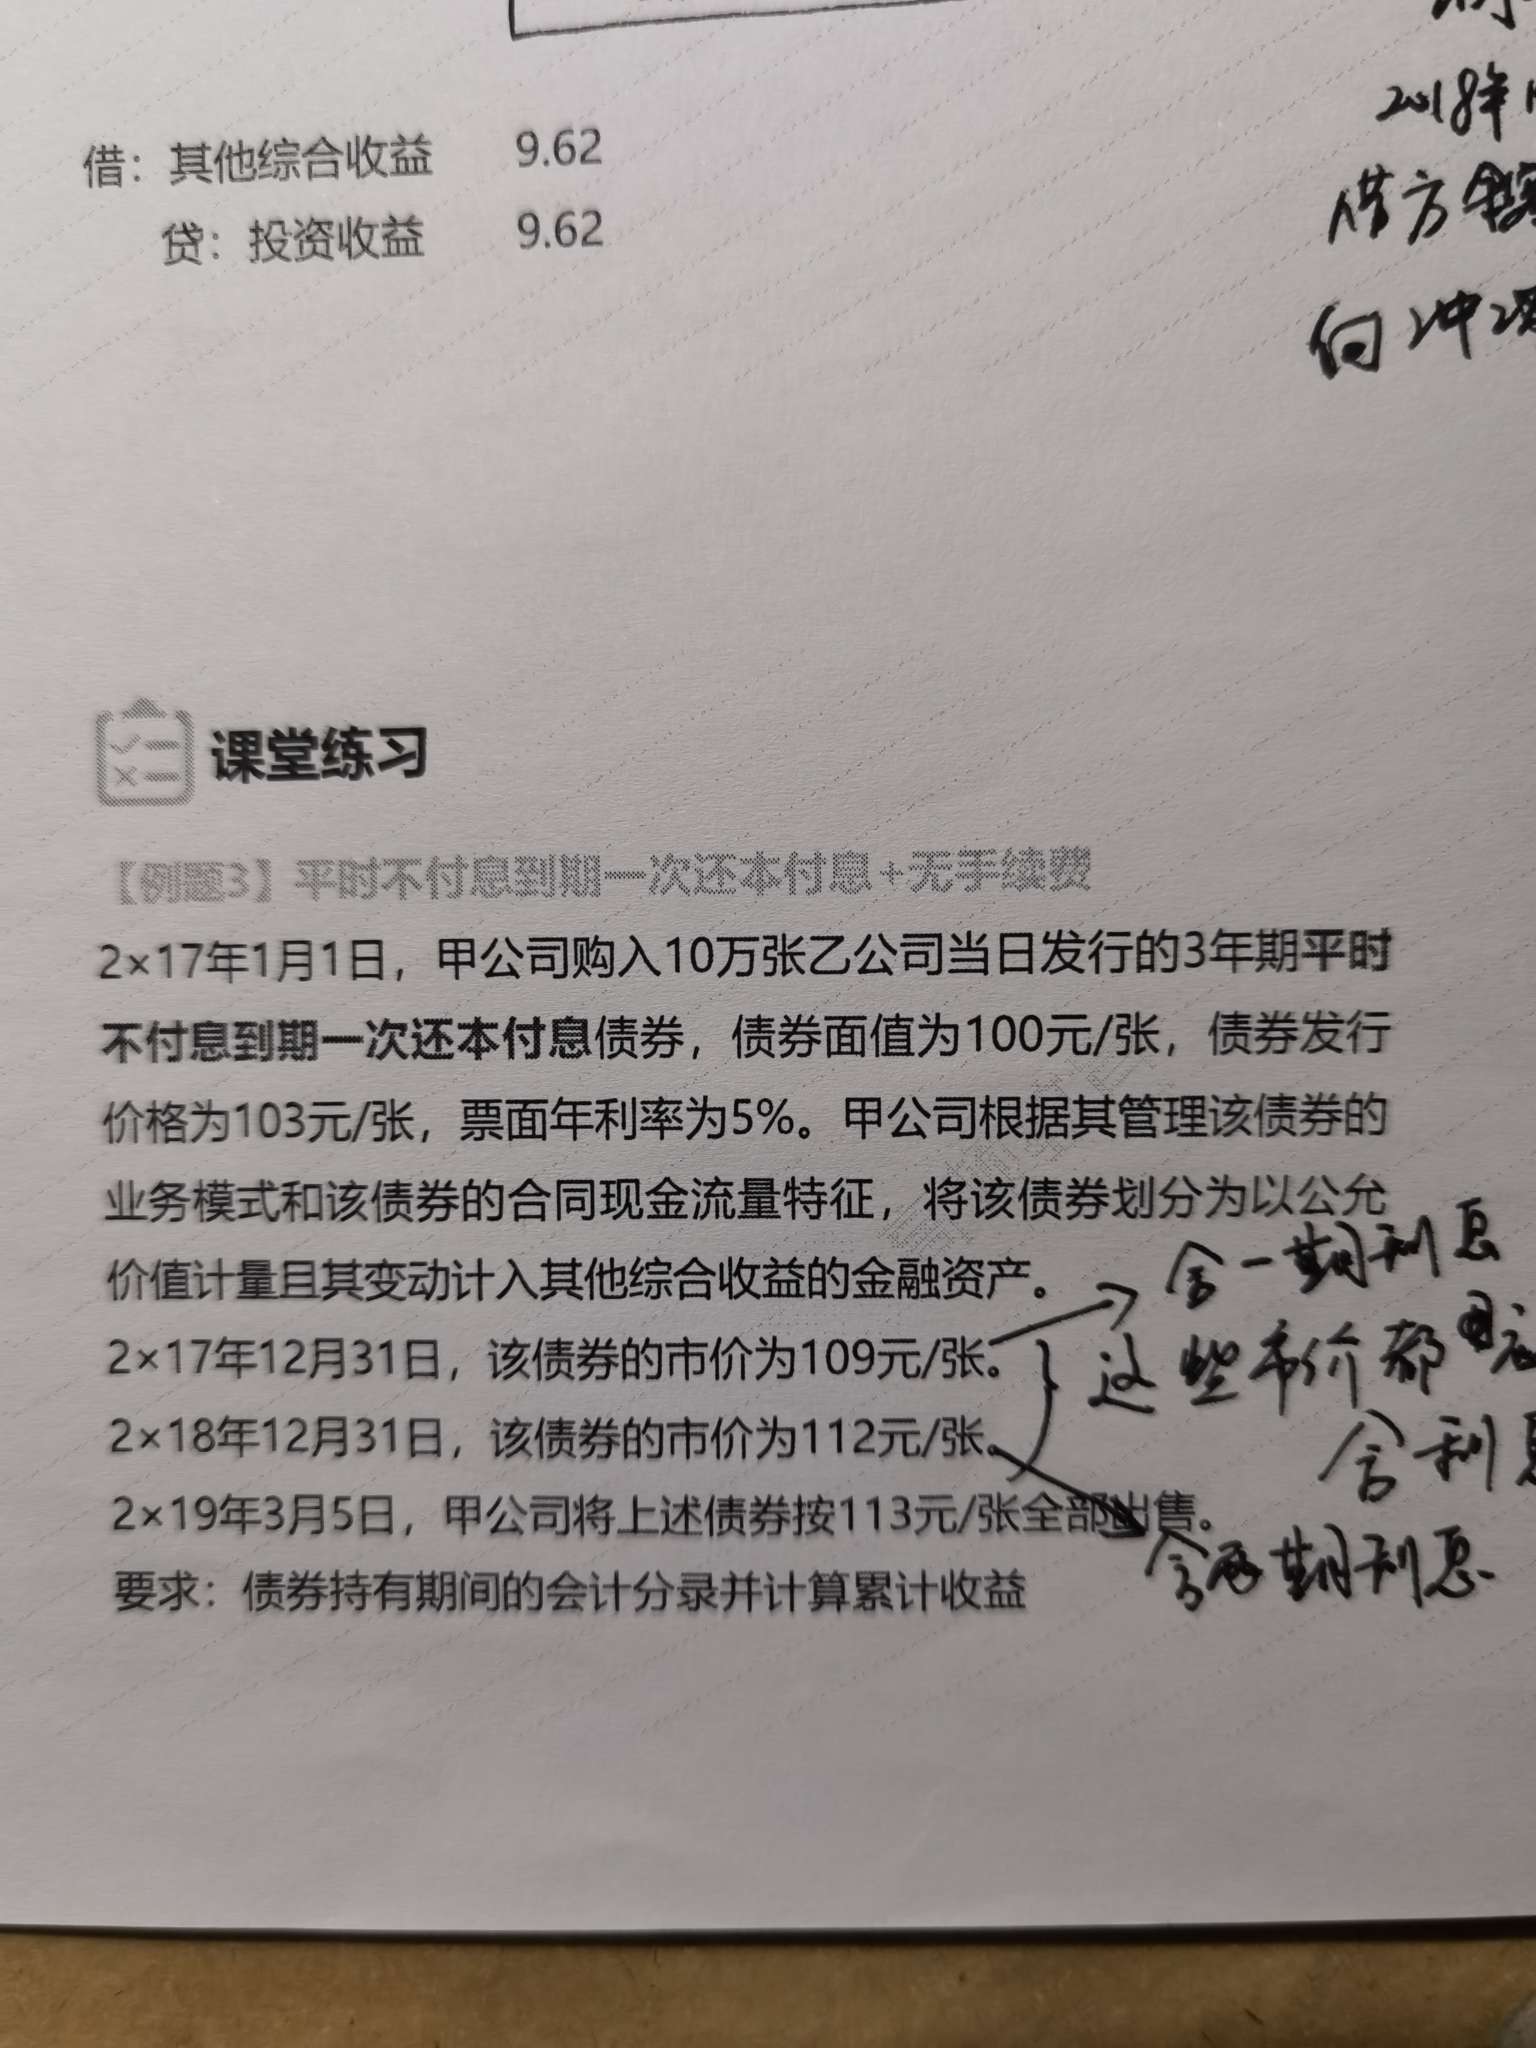 2018年
借方
借：其他综合收益 9.62
贷：投资收益 9.62
向冲
课堂练习
【例题3】平时不付息到期一次还本付息+无手续费
2×17年1月1日，甲公司购入10万张乙公司当日发行的3年期平时
不付息到期一次还本付息债券，债券面值为100元/张，债券发行
价格为103元/张，票面年利率为5%。甲公司根据其管理该债券的
业务模式和该债券的合同现金流量特征，将该债券划分为以公允
价值计量且其变动计入其他综合收益的金融资产。
含一期利息
2×17年12月31日，该债券的市价为109元/张。
这些市价都
2×18年12月31日，该债券的市价为112元/张。
含利息
2×19年3月5日，甲公司将上述债券按113元/张全部出售。
含两期利息
要求：债券持有期间的会计分录并计算累计收益